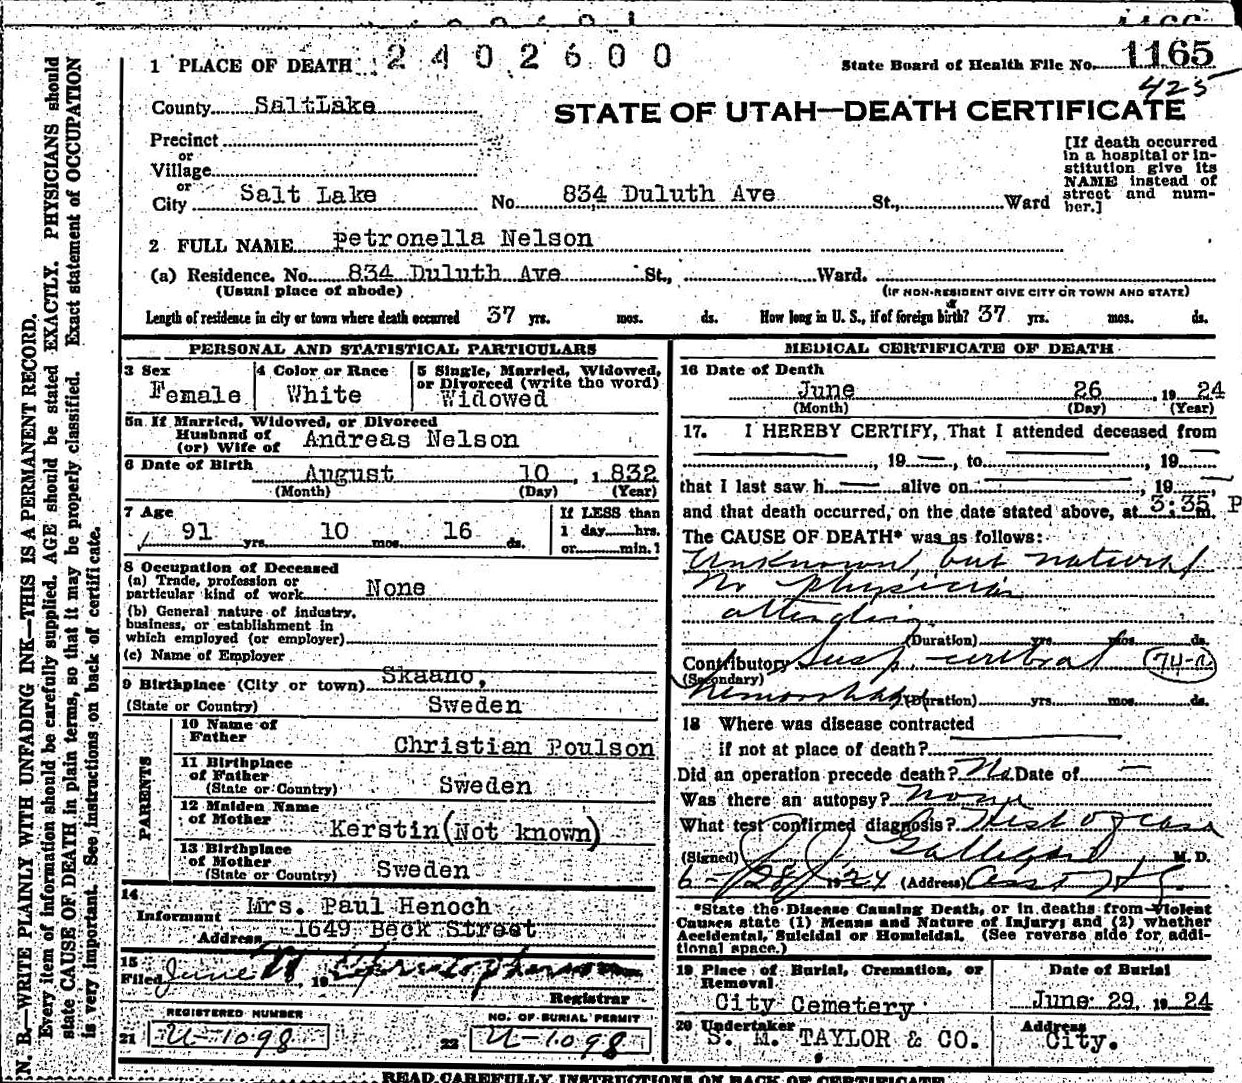 2402600
1 PLACE OF DEATH
State Board of Health File No. 1165
425
County SaltLake
STATE OF UTAH—DEATH CERTIFICATE
Precinct
or
Village
or
City Salt Lake No. 834 Duluth Ave St., Ward
[If death occurred
in a hospital or in-
stitution give its
NAME instead of
street and num-
ber.]
2 FULL NAME Petronella Nelson
(a) Residence. No. 834 Duluth Ave St., Ward.
(Usual place of abode) (IF NON-RESIDENT GIVE CITY OR TOWN AND STATE)
Length of residence in city or town where death occurred 37 yrs. mos. ds. How long in U. S., if of foreign birth? 37 yrs. mos. ds.
PERSONAL AND STATISTICAL PARTICULARS
3 Sex
Female
4 Color or Race
White
5 Single, Married, Widowed,
or Divorced (write the word)
Widowed
5a If Married, Widowed, or Divorced
Husband of
(or) Wife of Andreas Nelson
6 Date of Birth August 10, 1832
(Month) (Day) (Year)
7 Age
91 yrs. 10 mos. 16 ds.
If LESS than
1 day hrs.
or min.?
8 Occupation of Deceased
(a) Trade, profession or
particular kind of work None
(b) General nature of industry,
business, or establishment in
which employed (or employer)
(c) Name of Employer
9 Birthplace (City or town) Skaano,
(State or Country) Sweden
PARENTS
10 Name of
Father Christian Poulson
11 Birthplace
of Father
(State or Country) Sweden
12 Maiden Name
of Mother Kerstin (Not known)
13 Birthplace
of Mother
(State or Country) Sweden
14
Informant Mrs. Paul Henoch
Address 1649 Beck Street
15
Filed June, 19
Registrar
REGISTERED NUMBER
21 U-1098
NO. OF BURIAL PERMIT
22 U-1098
MEDICAL CERTIFICATE OF DEATH
16 Date of Death
June 26, 1924
(Month) (Day) (Year)
17. I HEREBY CERTIFY, That I attended deceased from
, 19, to, 19
that I last saw h alive on, 19,
and that death occurred, on the date stated above, at 3:35 P m.
The CAUSE OF DEATH* was as follows:
Unknown, but natural
No physician
attending.
(Duration) yrs. mos. ds.
Contributory Susp. cerebral 74-a
(Secondary)
hemorrhage (Duration) yrs. mos. ds.
18 Where was disease contracted
if not at place of death?
Did an operation precede death? No Date of —
Was there an autopsy? none
What test confirmed diagnosis? Hist of case
(Signed) Galligan M. D.
6-28, 1924 (Address) Asst
*State the Disease Causing Death, or in deaths from Violent
Causes state (1) Means and Nature of Injury; and (2) whether
Accidental, Suicidal or Homicidal. (See reverse side for addi-
tional space.)
19 Place of Burial, Cremation, or
Removal
City Cemetery
Date of Burial
June 29, 1924
20 Undertaker
S. M. TAYLOR & CO.
Address
City.
READ CAREFULLY INSTRUCTIONS ON BACK OF CERTIFICATE
N. B.—WRITE PLAINLY WITH UNFADING INK—THIS IS A PERMANENT RECORD.
Every item of information should be carefully supplied. AGE should be stated EXACTLY. PHYSICIANS should
state CAUSE OF DEATH in plain terms, so that it may be properly classified. Exact statement of OCCUPATION
is very important. See instructions on back of certificate.